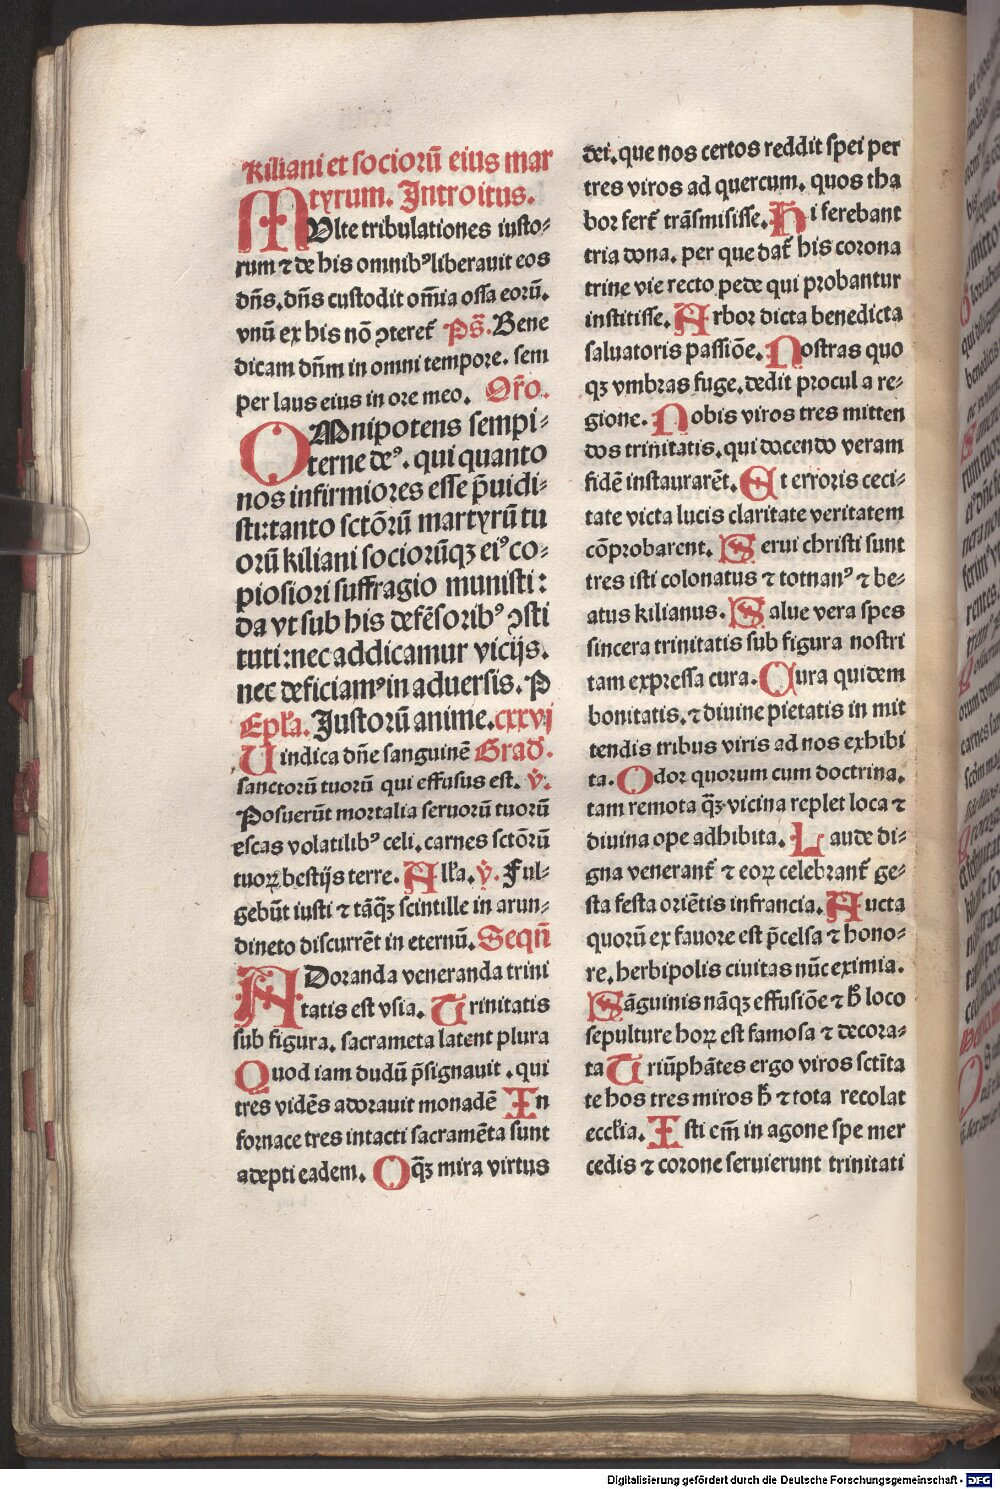 Kiliani et sociorū eius mar
tyrum. Introitus.
MUlte tribulationes iusto⸗
rum ⁊ de his omnibꝰ liberauit eos
dn̄s. dn̄s custodit om̄ia ossa eorū.
vnū ex his nō ꝯteret̄ Ps̄. Bene
dicam dn̄m in omni tempore. sem
per laus eius in ore meo. Or̄o.
OMnipotens sempi⸗
terne deꝰ. qui quanto
nos infirmiores esse p̄uidi⸗
sti: tanto sctōrū martyrū tu
orū kiliani sociorūqꝫ eiꝰ co⸗
piosiori suffragio munisti:
da vt sub his defēsoribꝰ ꝯsti
tuti: nec addicamur vicijs.
nec deficiamꝰ in aduersis. P
Epl̄a. Justorū anime. cxxvj
Uindica dn̄e sanguinē Grad̄.
sanctorū tuorū qui effusus est. v̄.
Posuerūt mortalia seruorū tuorū
escas volatilibꝰ celi. carnes sctōrū
tuoꝝ bestijs terre. All̄a. v̄. Ful⸗
gebūt iusti ⁊ tāqꝫ̄ scintille in arun⸗
dineto discurrēt in eternū. Sequē
ADoranda veneranda trini
tatis est vsia. Trinitatis
sub figura. sacrameta latent plura
Quod iam dudū p̄signauit. qui
tres vidēs adorauit monadē In
fornace tres intacti sacramēta sunt
adepti eadem. O qꝫ̄ mira virtus
dei. que nos certos reddit spei per
tres viros ad quercum. quos tha
bor fert̄ trāsmisisse. Hi ferebant
tria dona. per que dat̄ his corona
trine vie recto pede qui probantur
institisse. Arbor dicta benedicta
saluatoris passiōe. Nostras quo
qꝫ vmbras fuge. dedit procul a re⸗
gione. Nobis viros tres mitten
dos trinitatis. qui docendo veram
fidē instaurarēt. Et erroris ceci⸗
tate victa lucis claritate veritatem
cōprobarent. Serui christi sunt
tres isti colonatus ⁊ totnanꝰ ⁊ be⸗
atus kilianus. Salue vera spes
sincera trinitatis sub figura nostri
tam expressa cura. Cura quidem
bonitatis. ⁊ diuine pietatis in mit
tendis tribus viris ad nos exhibi
ta. Odor quorum cum doctrina.
tam remota qꝫ̄ vicina replet loca ⁊
diuina ope adhibita. Laude di⸗
gna venerant̄ ⁊ eoꝝ celebrant̄ ge⸗
sta festa oriētis infrancia. Aucta
quorū ex fauore est p̄celsa ⁊ hono⸗
re. herbipolis ciuitas nūc eximia.
Sāguinis nāqꝫ effusiōe ⁊ h̄ loco
sepulture hoꝝ est famosa ⁊ decora⸗
ta Triūphātes ergo viros sctīta
te hos tres miros h̄ ⁊ tota recolat
eccl̄ia. Isti em̄ in agone spe mer
cedis ⁊ corone seruierunt trinitati
Digitalisierung gefördert durch die Deutsche Forschungsgemeinschaft - DFG